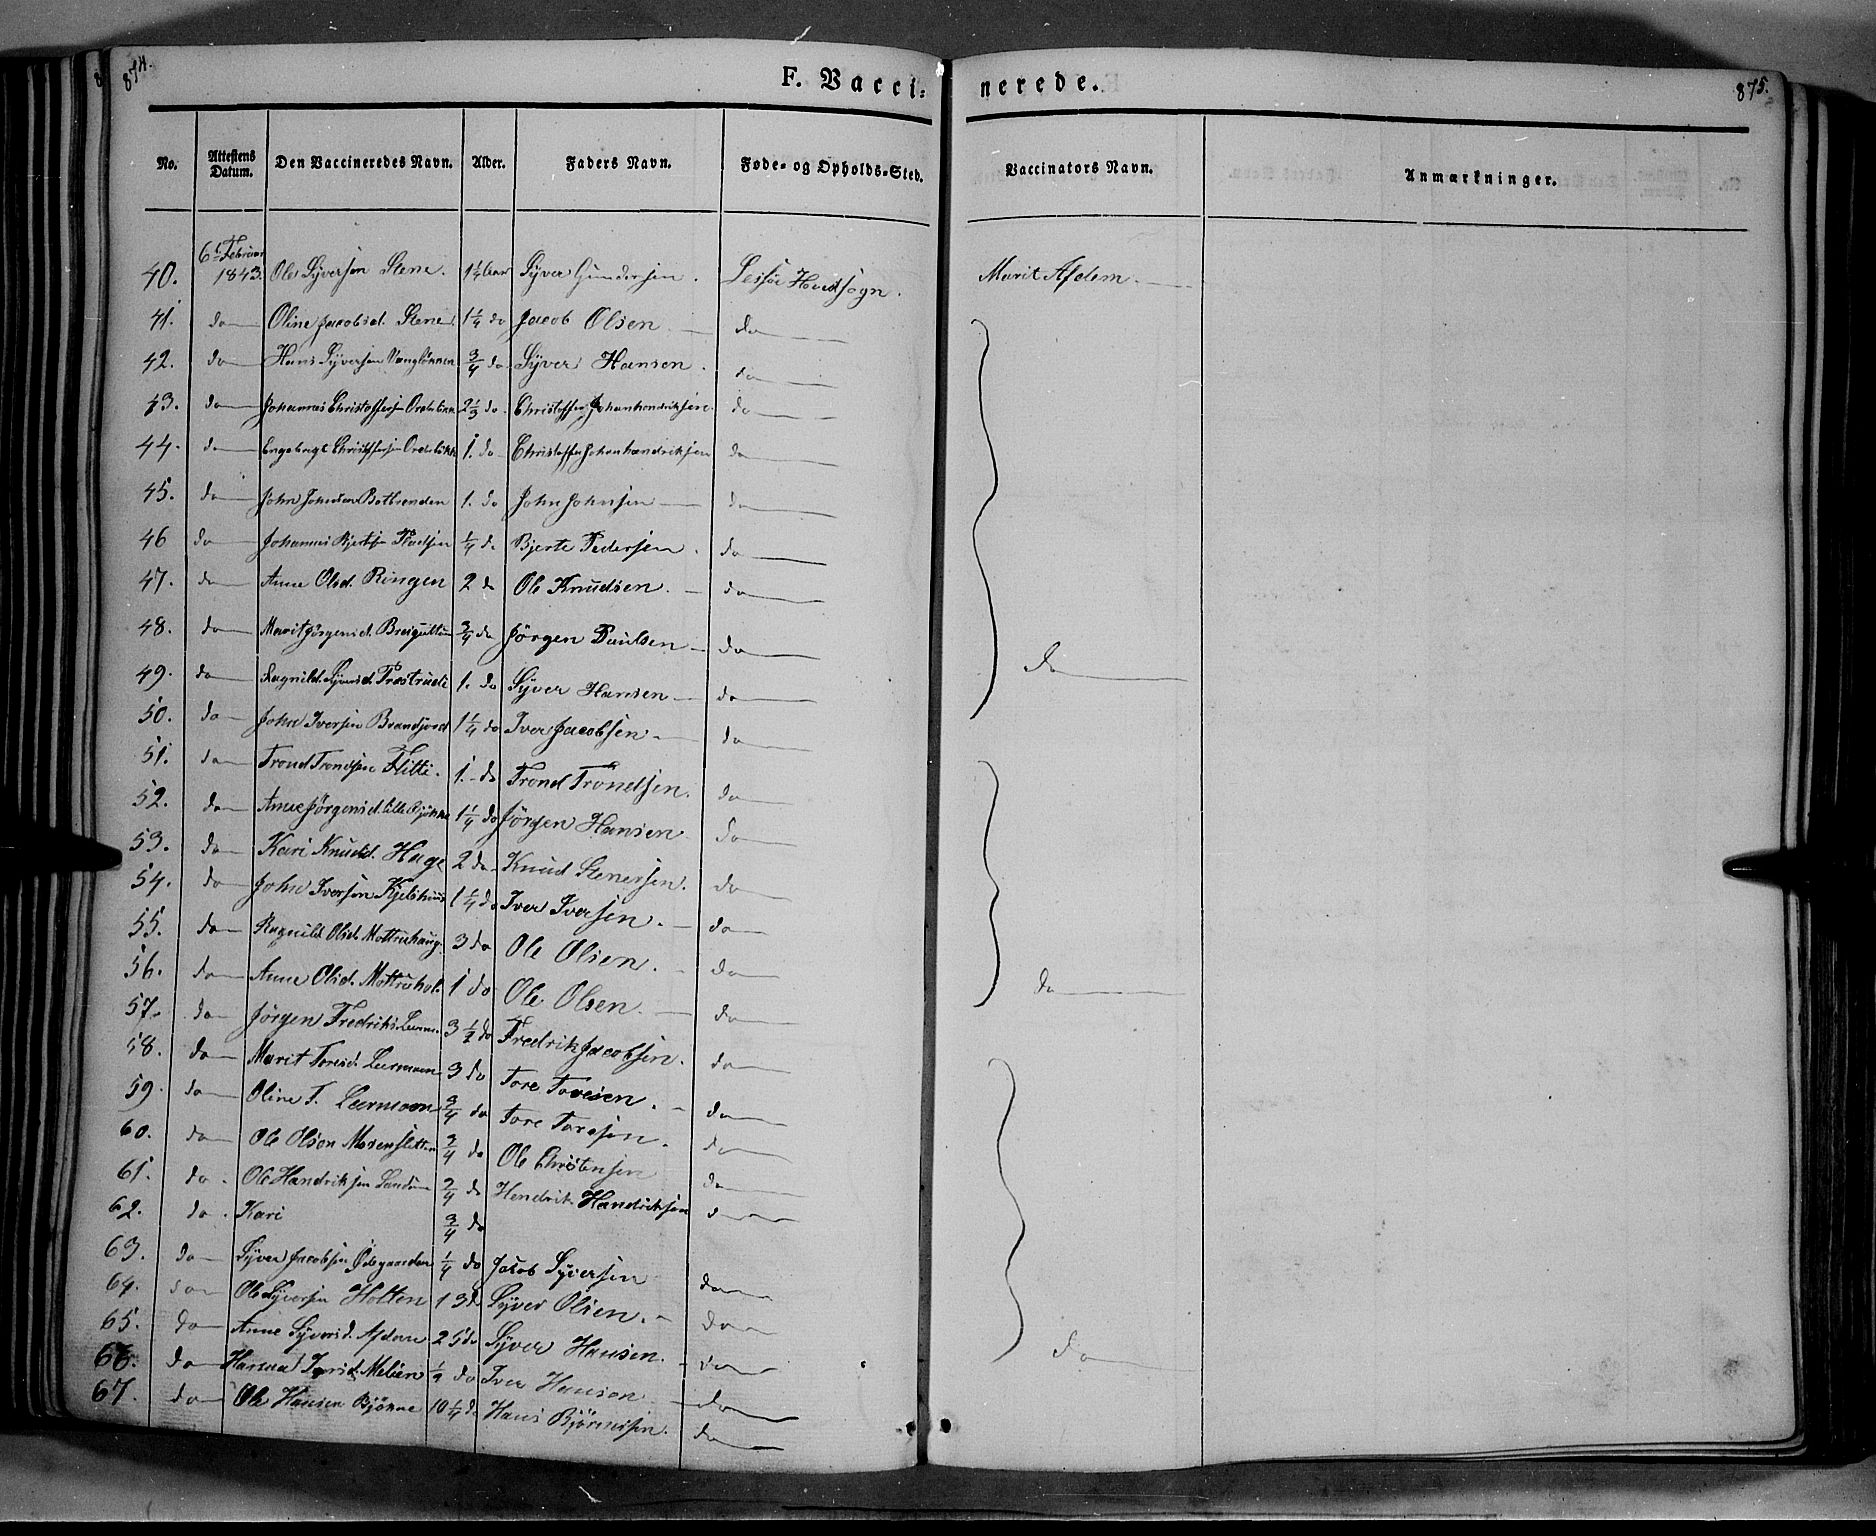 874.
F. Vacci- nerede.
875.
No. Attestens Datum. Den Vaccineredes Navn. Alder. Faders Navn. Føde- og Opholds-Sted. Vaccinators Navn. Anmærkninger.
40. 6t Februar 1843. Ole Syversen Stene. 1¼ Aar Syver Gundersen. Lessøe Hovedsogn. Marit Asdem.
41. do Oline Jacobsd. Stene 1¼ do Jacob Olsen do
42. do Hans Syversen 3/4 do Syver Hansen. do
43. do Johannes Christoffersen 2⅓ do. Christoffer Johanhendriksen. do
44. do Engebrigt Christoffersen 1. do Christoffer Johanhendriksen do
45. do John Johnsen Botheenden 1. do John Johnsen do
46 do Johannes ¼ do Bjerte Pedersen. do
47. do Anne Olsd. Ringen 2 do Ole Knudsen. do
48. do Marit Jörgensd. 3/4 do Jörgen Paulsen do do
49. do Ragnild Syversd. 1. do Syver Hansen do
50. do John Iversen 1¼ do Iver Jacobsen. do
51. do Trond Trondsen Flitti. 1. do Trond Trondsen. do
52. do Anne Jörgensd. Lille 1¼ do Jörgen Hansen do
53. do Kari Knudsd. Hage 2 do Knud Stenersen. do
54. do John Iversen Kjelshuus 1¼ do Iver Iversen. do
55. do Ragnild Olsd. 3 do Ole Olsen. do
56. do Anne Olsd. 1 do Ole Olsen. do do
57. do Jörgen Fredriks. 3½ do Fredrik Jacobsen. do
58. do Marit Toresd. Leermoen 3 do Tore Toresen. do
59. do Oline T. Leermoen 3/4 do Tore Toresen. do
60. do Ole Olsen 3/4 do Ole Christensen do
61. do. Ole Handriksen 2/4 do Hendrik Handriksen do
62. do. Kari 3/4 do
63. do Syver Jacobsen Ödegaarden ¼ do Jacob Syversen do
64. do Ole Syversen Holten 1 3 d Syver Olsen. do
65. do Anne Syversd. Asdem 2 5 do Syver Hansen. do do
66. do do Iver Hansen do
67. do Ole Hansen Björkne 10¼ do Hans Björnnsen. do